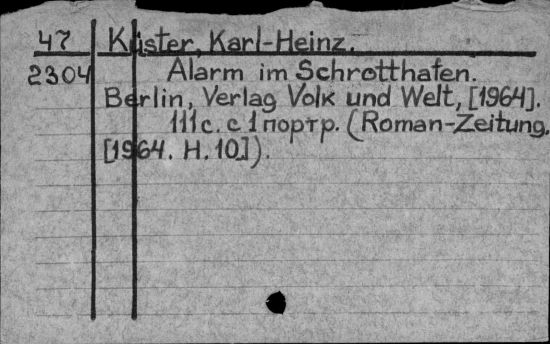 47 Küster, Karl-Heinz.
2304 Alarm im Schrotthafen.
Berlin, Verlag Volk und Welt, [1964].
111 с. с 1 портр. (Roman-Zeitung,
[1964. H. 10]).